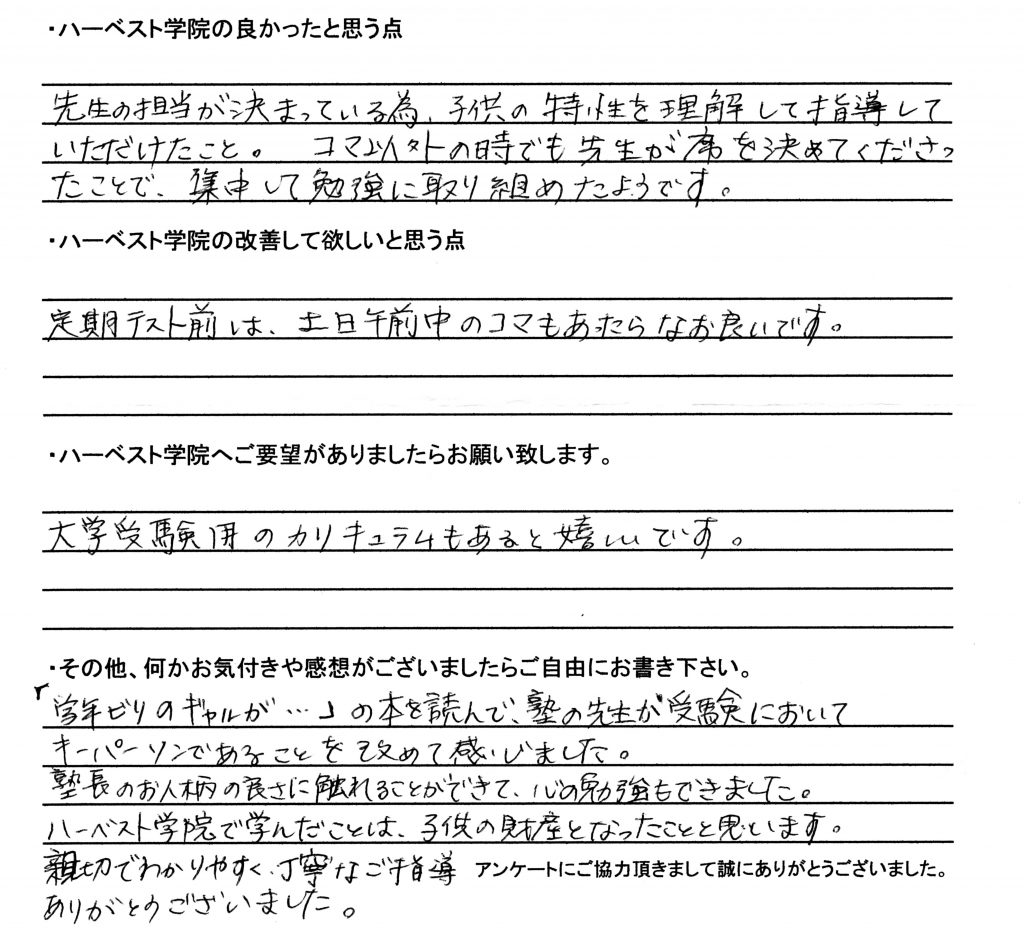 ・ハーベスト学院の良かったと思う点
先生の担当が決まっている為、子供の特性を理解して指導して
いただけたこと。 コマ以外の時でも先生が席を決めてくださっ
たことで、集中して勉強に取り組めたようです。
・ハーベスト学院の改善して欲しいと思う点
定期テスト前は、土日午前中のコマもあったらなお良いです。
・ハーベスト学院へご要望がありましたらお願い致します。
大学受験用のカリキュラムもあると嬉しいです。
・その他、何かお気付きや感想がございましたらご自由にお書き下さい。
「学年ビリのギャルが…」の本を読んで、塾の先生が受験において
キーパーソンであることを改めて感じました。
塾長のお人柄の良さに触れることができて、心の勉強もできました。
ハーベスト学院で学んだことは、子供の財産となったことと思います。
親切でわかりやすく、丁寧なご指導 アンケートにご協力頂きまして誠にありがとうございました。
ありがとうございました。